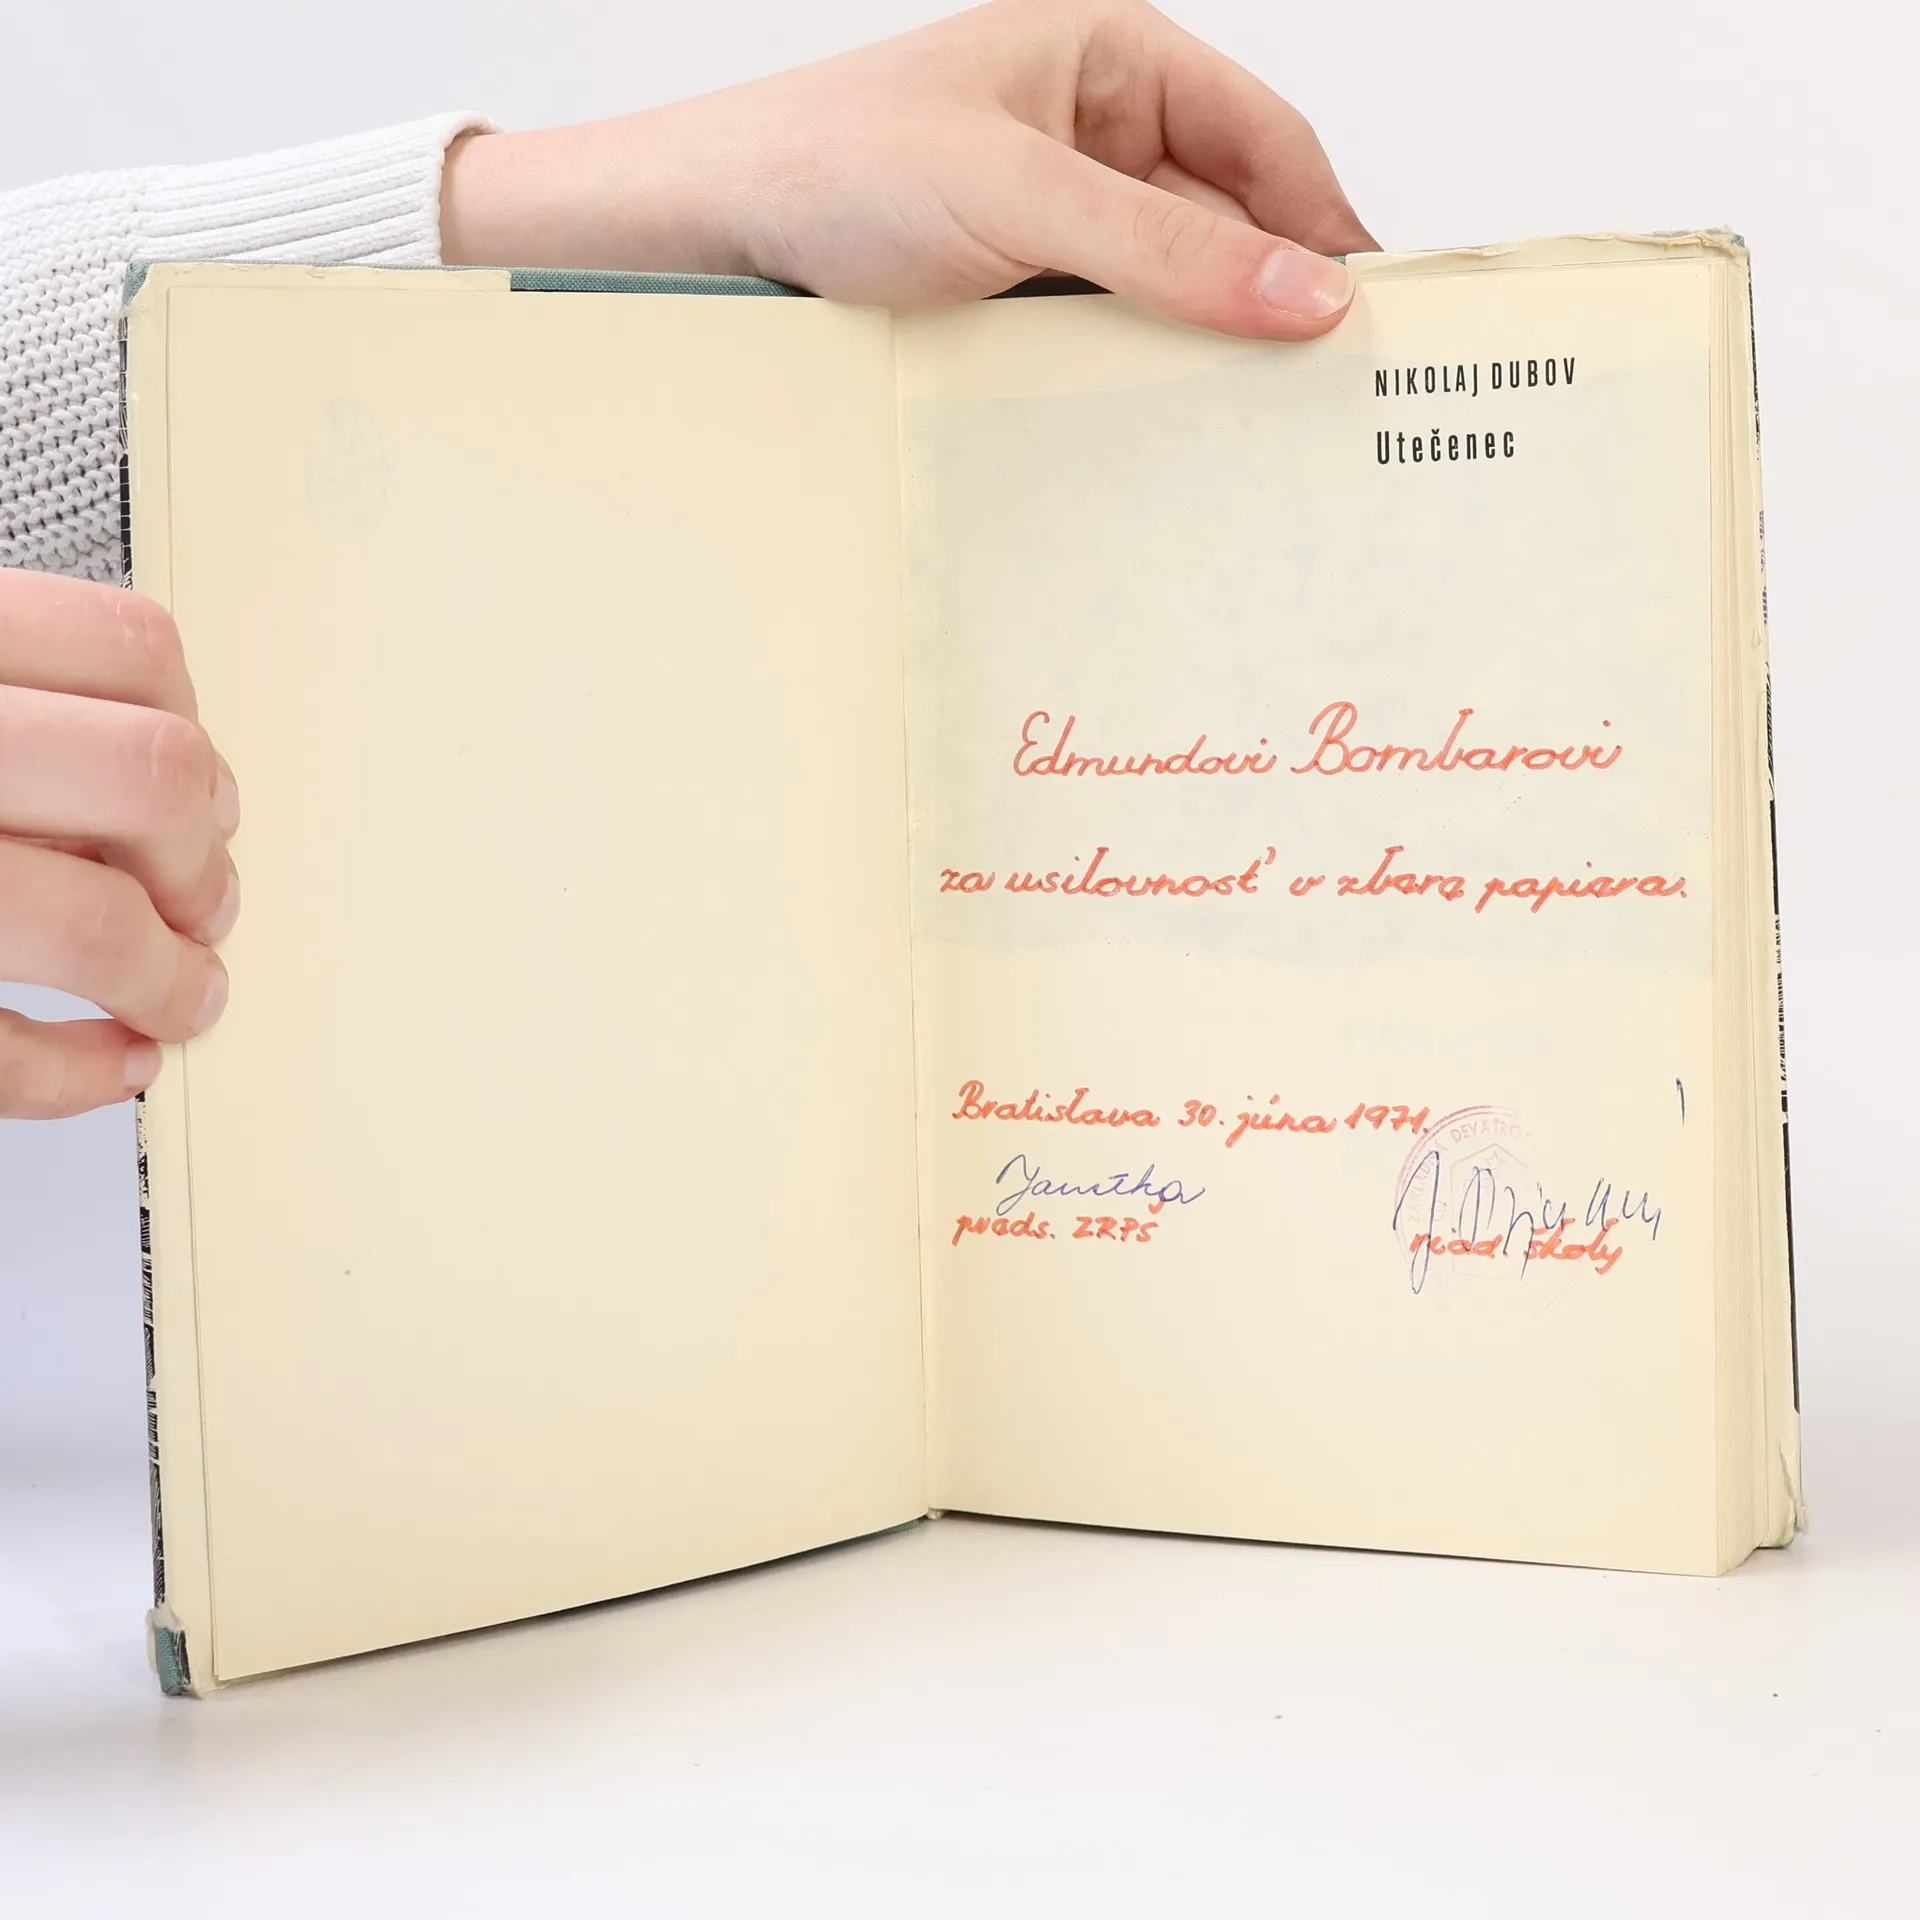 NIKOLAJ DUBOV
Utečenec
Edmundovi Bombarovi
za usilovnosť v zbere papiera.
Bratislava 30. júna 1971.
preds. ZRPŠ
riad. školy
ZÁKLADNÁ DEVÄŤRO